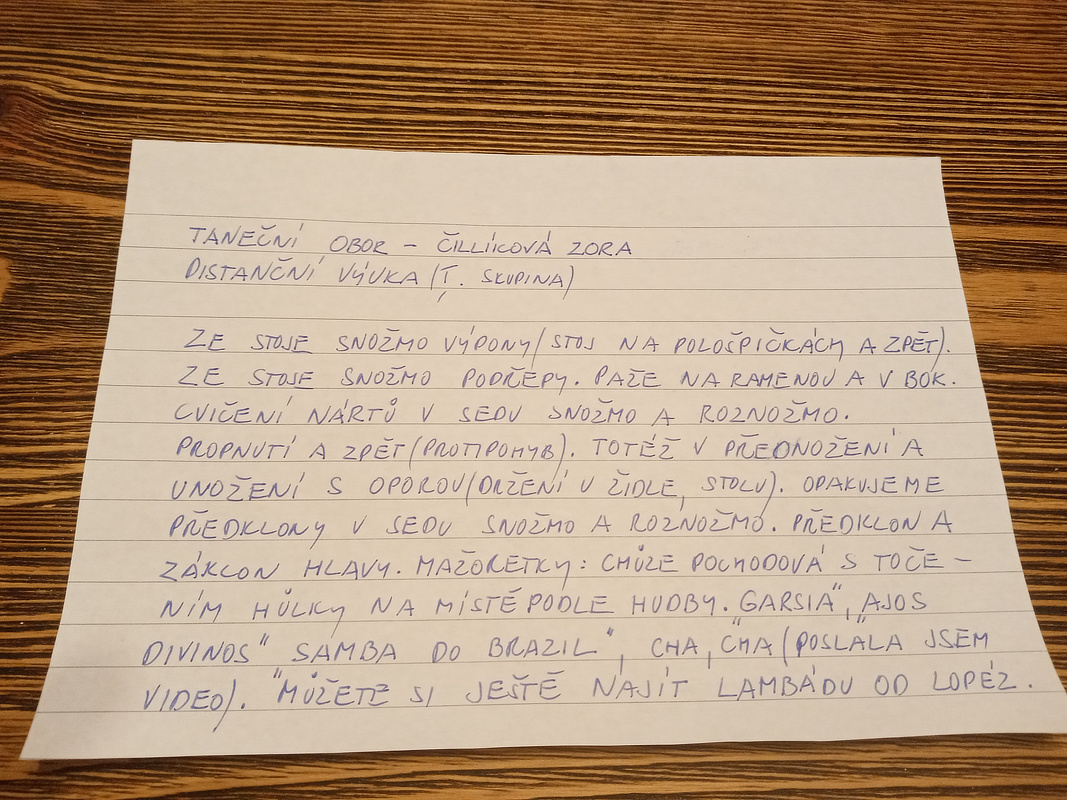 TANEČNÍ OBOR – ČILLÍKOVÁ ZORA
DISTANČNÍ VÝUKA (Í. SKUPINA)
ZE STOJE SNOŽMO VÝPONY (STOJ NA POLOŠPIČKÁCH A ZPĚT).
ZE STOJE SNOŽMO PODŘEPY. PAŽE NA RAMENOU A V BOK.
CVIČENÍ NÁRTŮ V SEDU SNOŽMO A ROZNOŽMO.
PROPNUTÍ A ZPĚT (PROTIPOHYB). TOTÉŽ V PŘEDNOŽENÍ A
UNOŽENÍ S OPOROU (DRŽENÍ U ŽIDLE, STOLU). OPAKUJEME
PŘEDKLONY V SEDU SNOŽMO A ROZNOŽMO. PŘEDKLON A
ZÁKLON HLAVY. MAŽORETKY: CHŮZE POCHODOVÁ S TOČE –
NÍM HŮLKY NA MÍSTĚ PODLE HUDBY. GARSIA", AJOS
DIVINOS" SAMBA DO BRAZIL", CHA, "CHA (POSLALA JSEM
VIDEO). "MŮŽETE SI JEŠTĚ NAJÍT LAMBÁDU OD LOPÉZ.